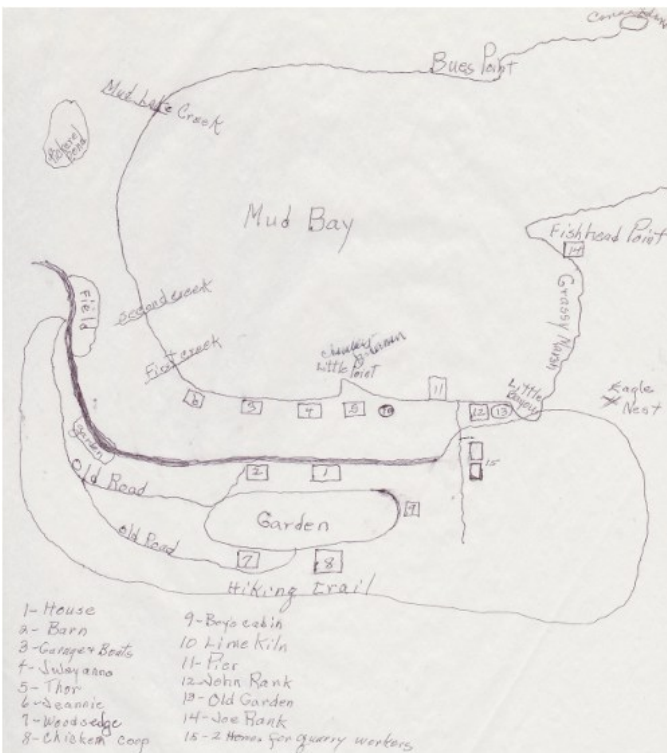 Bues Point
Mud Lake Creek
Pickerel Pond
Mud Bay
Fishhead Point
14
Grassy Marsh
Field
Second creek
First creek
Little Point
Little Bayou
Eagle Nest
6
3
4
5
10
11
12
13
15
Garden
Old Road
2
1
Garden
9
Old Road
7
8
Hiking trail
1- House
2- Barn
3- Garage & Boats
4-
5- Thor
6- Jeannie
7- Woodsedge
8- Chicken coop
9- Boy's cabin
10 Lime Kiln
11- Pier
12 John Rank
13- Old Garden
14- Joe Rank
15- 2 Homes for quarry workers